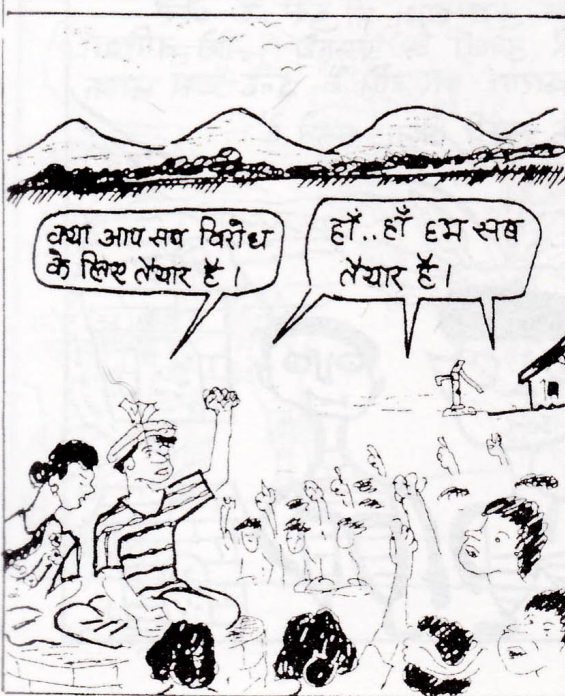 क्या आप सब विरोध
के लिए तैयार है ।
हाँ..हाँ हम सब
तैयार है ।